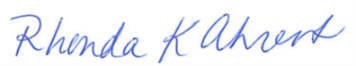 Rhonda K Ahrent